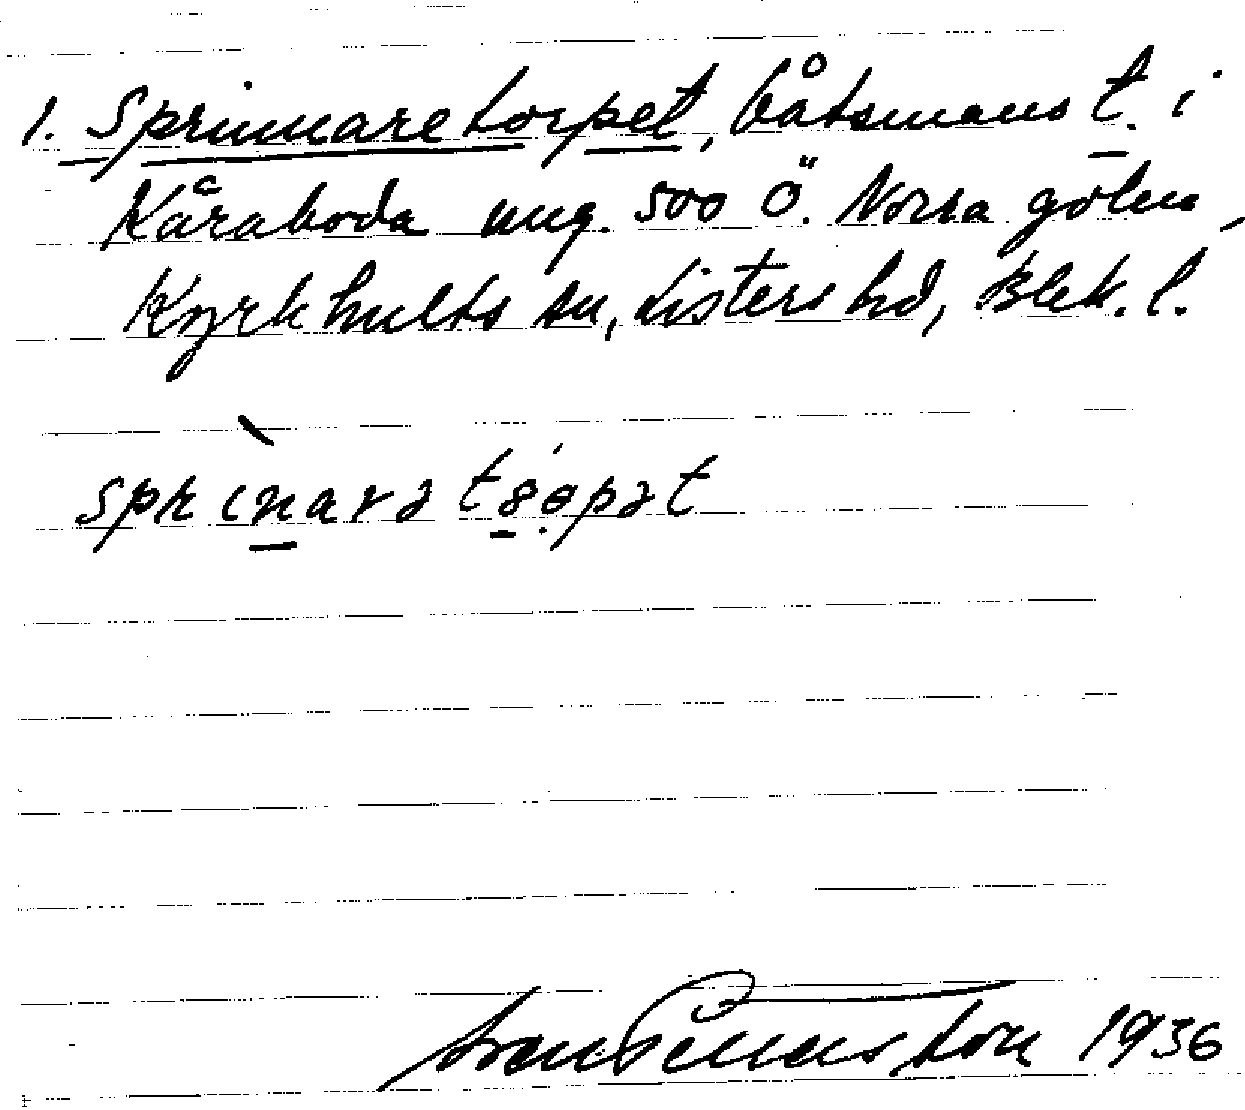 1. Sprinnaretorpet, båtsmans t. i
Kåraboda ung. 500 Ö. Norra gölen,
Kyrkhults sn, Listers hd, Blek. l.
sprinarə tsöpət
1936